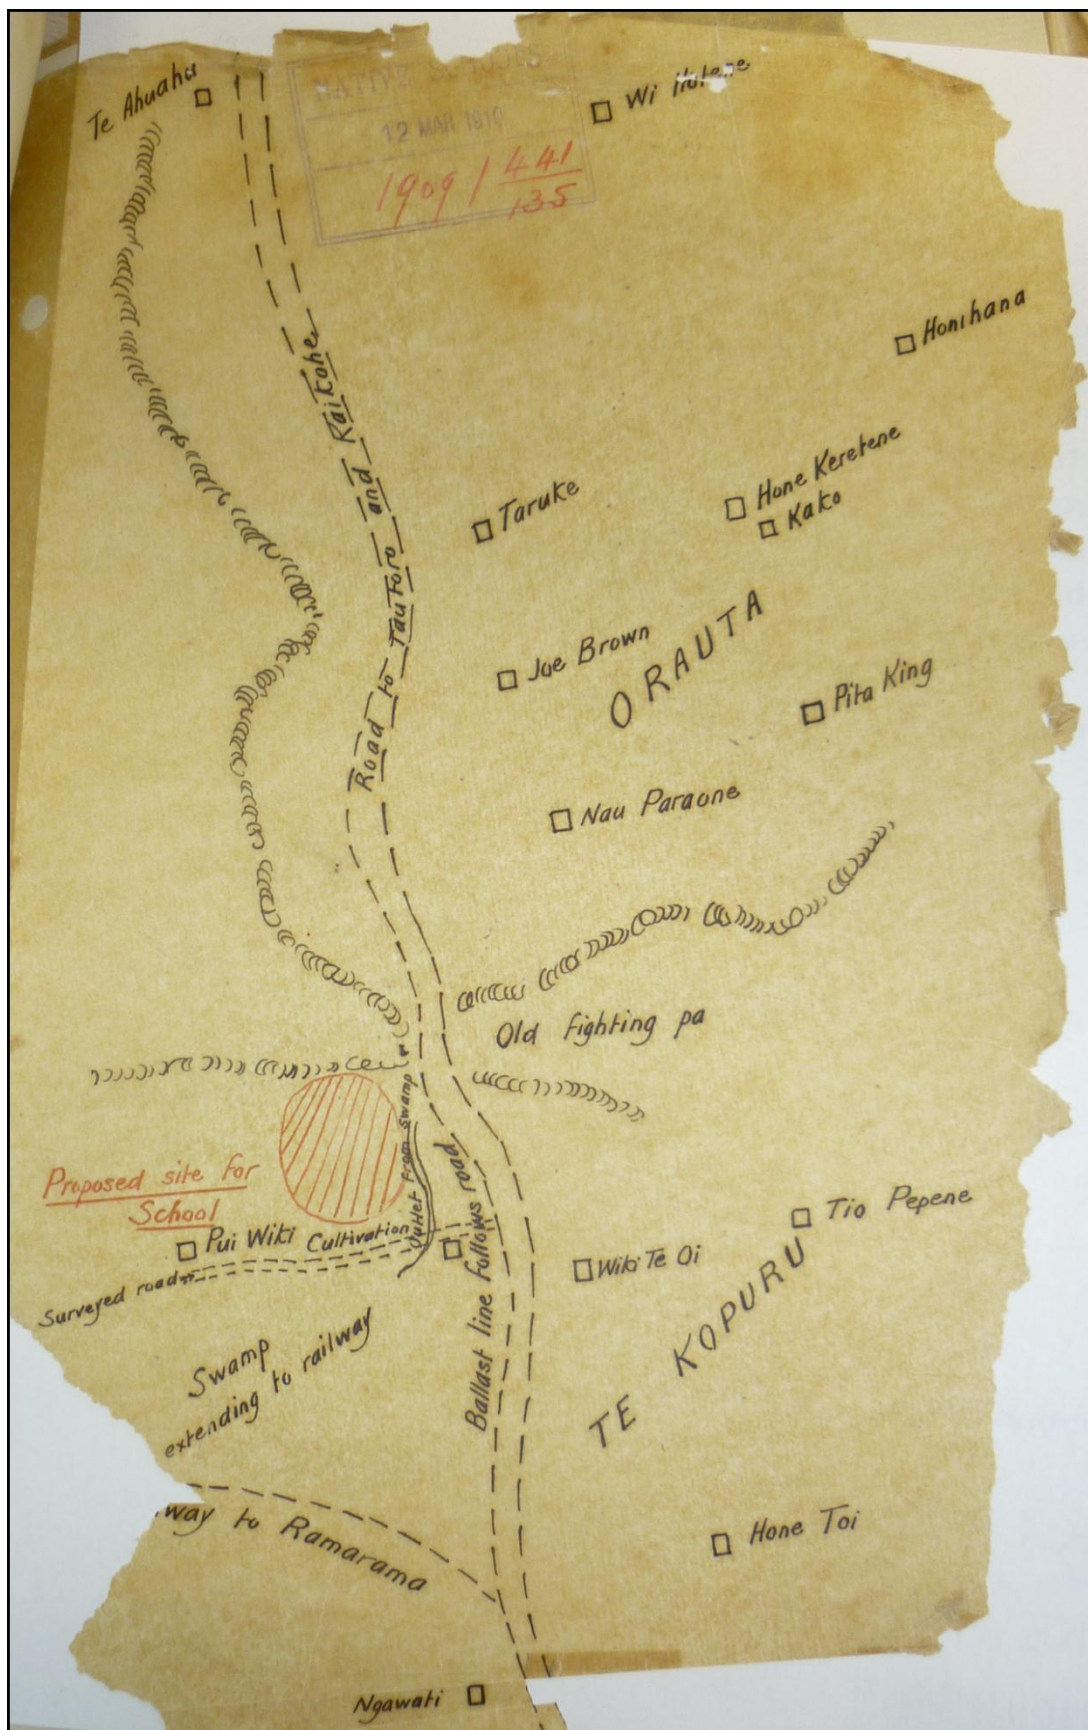 Te Ahuahu
NATIVE
12 MAR 1910
1909 / 441
135
Wi Hotene
Honihana
Road to Tautoro and Kaikohe
Taruke
Hone Keretene
Kako
Joe Brown
ORAUTA
Pita King
Nau Paraone
Old fighting pa
Outlet from swamp
Proposed site for
School
Pui Wiki
Cultivation
Surveyed road
Ballast line follows road
Tio Pepene
Wiki Te Oi
TE KOPURU
Swamp
extending to railway
way to Ramarama
Hone Toi
Ngawati